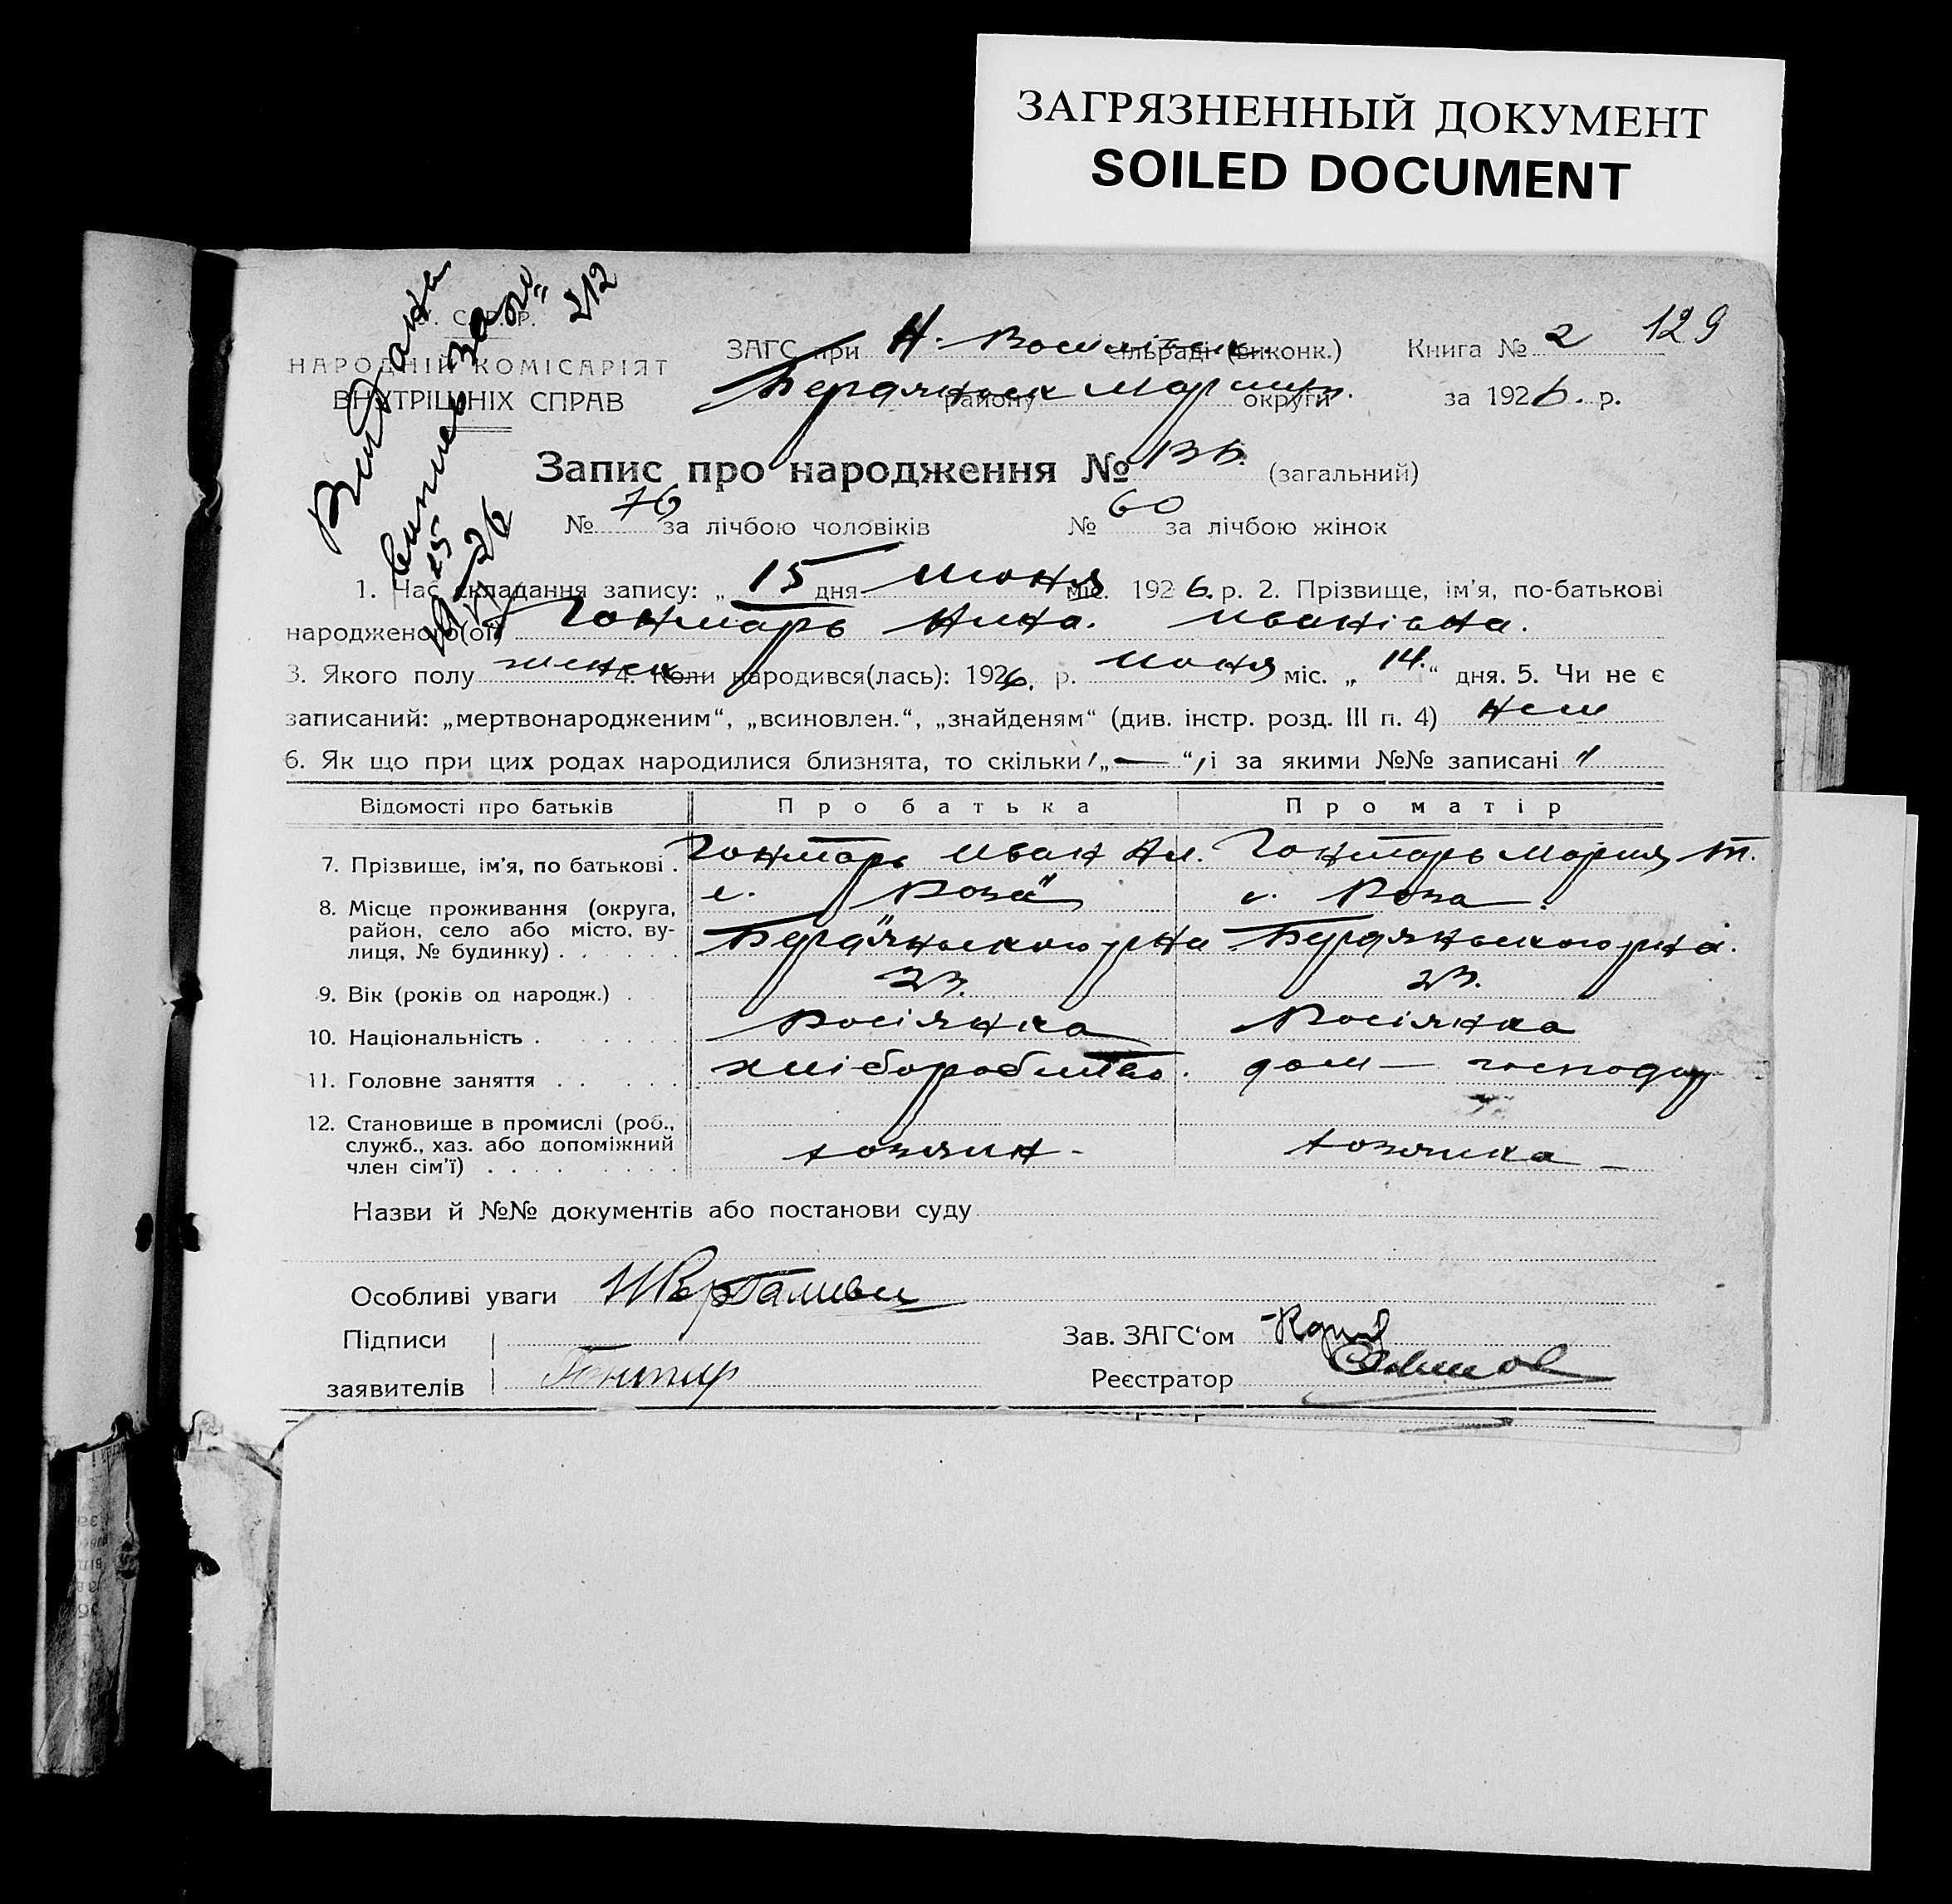 ЗАГРЯЗНЕННЫЙ ДОКУМЕНТ
SOILED DOCUMENT
212
129
У. С. Р. Р.
НАРОДНІЙ КОМІСАРІЯТ
ВНУТРІШНІХ СПРАВ
ЗАГС при Н. сільраді (виконк.) Книга № 2
Бердянськ району Маріуп. округи за 1926. р.
Запис про народження № 136. (загальний)
№ 76 за лічбою чоловіків № 60 за лічбою жінок
1. Час складання запису: „ 15 дня июня міс. 1926. р. 2. Прізвище, ім'я, по-батькові
народженого(ої) Гонтарь Анна. Иванівна.
3. Якого полу женск 4. Коли народився(лась): 1926. р. июня міс. „ 14. “ дня. 5. Чи не є
записаний: „мертвонародженим“, „всиновлен.“, „знайденям“ (див. інстр. розд. III п. 4) нет
6. Як що при цих родах народилися близнята, то скільки „ — “, і за якими №№ записані "
Відомості про батьків Про батька Про матір
7. Прізвище, ім'я, по батькові . Гонтарь Иван Ан. Гонтарь Мария Т.
8. Місце проживання (округа, с. Роза с. Роза.
район, село або місто, ву-
лиця, № будинку) . Бердянського р-на Бердянського р-на.
9. Вік (років од народж.) . 23. 23.
10. Національність . Росіянка Росіянка
11. Головне заняття . . хліборобство. дом — господар
12. Становище в промислі (роб.,
служб., хаз. або допоміжний
член сім'ї) . хозяин - хозяйка -
Назви й №№ документів або постанови суду
Особливі уваги
Підписи Зав. ЗАГС'ом
заявителів Гонтар Реєстратор